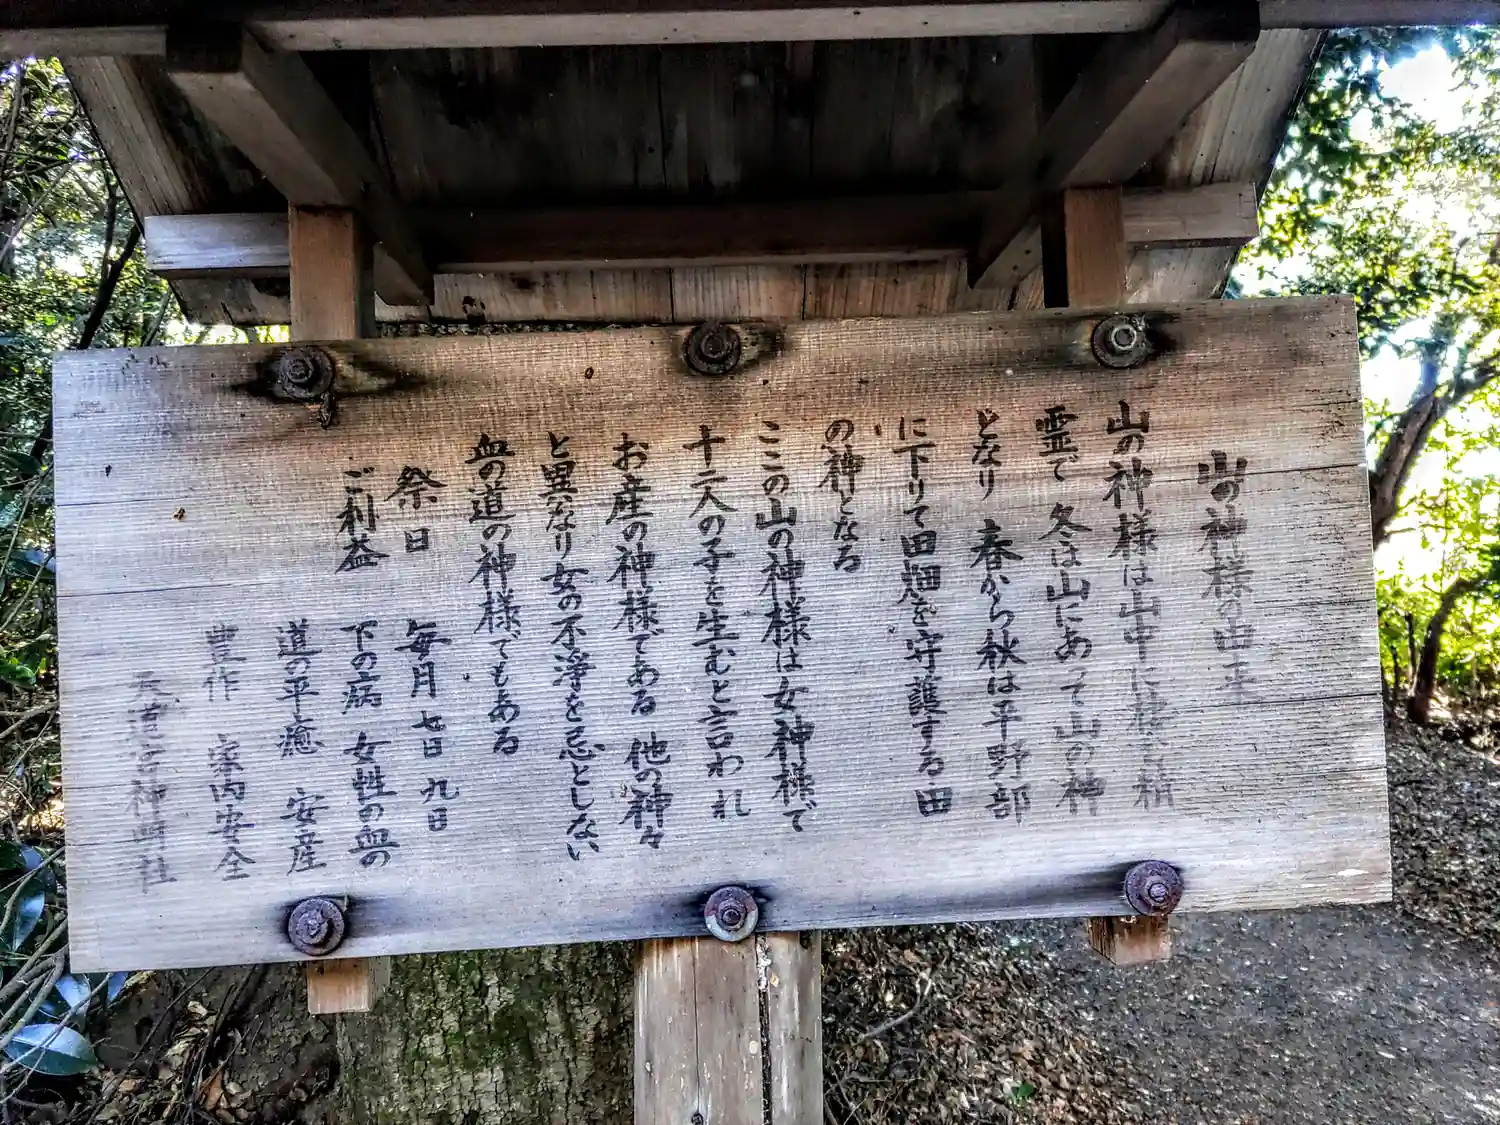 山の神様の由来
山の神様は山中に棲む精
霊で 冬は山にあって山の神
となり 春から秋は平野部
に下りて田畑を守護する田
の神となる
ここの山の神様は女神様で
十二人の子を生むと言われ
お産の神様である 他の神々
と異なり女の不浄を忌としない
血の道の神様でもある
祭日 毎月 七日 九日
ご利益 下の病 女性の血の
道の平癒 安産
豊作 家内安全
天道宮神明社